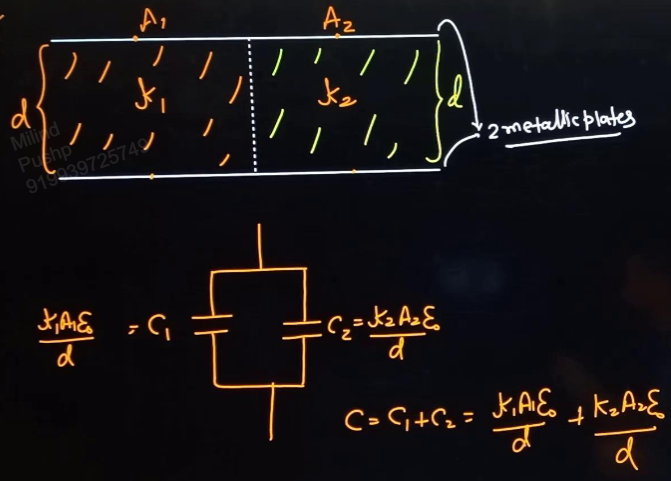 A₁ A₂
d K₁ K₂ d
2 metallic plates
Milind
Pushp
919939725749
K₁A₁ε₀/d = C₁ C₂ = K₂A₂ε₀/d
C = C₁ + C₂ = K₁A₁ε₀/d + K₂A₂ε₀/d